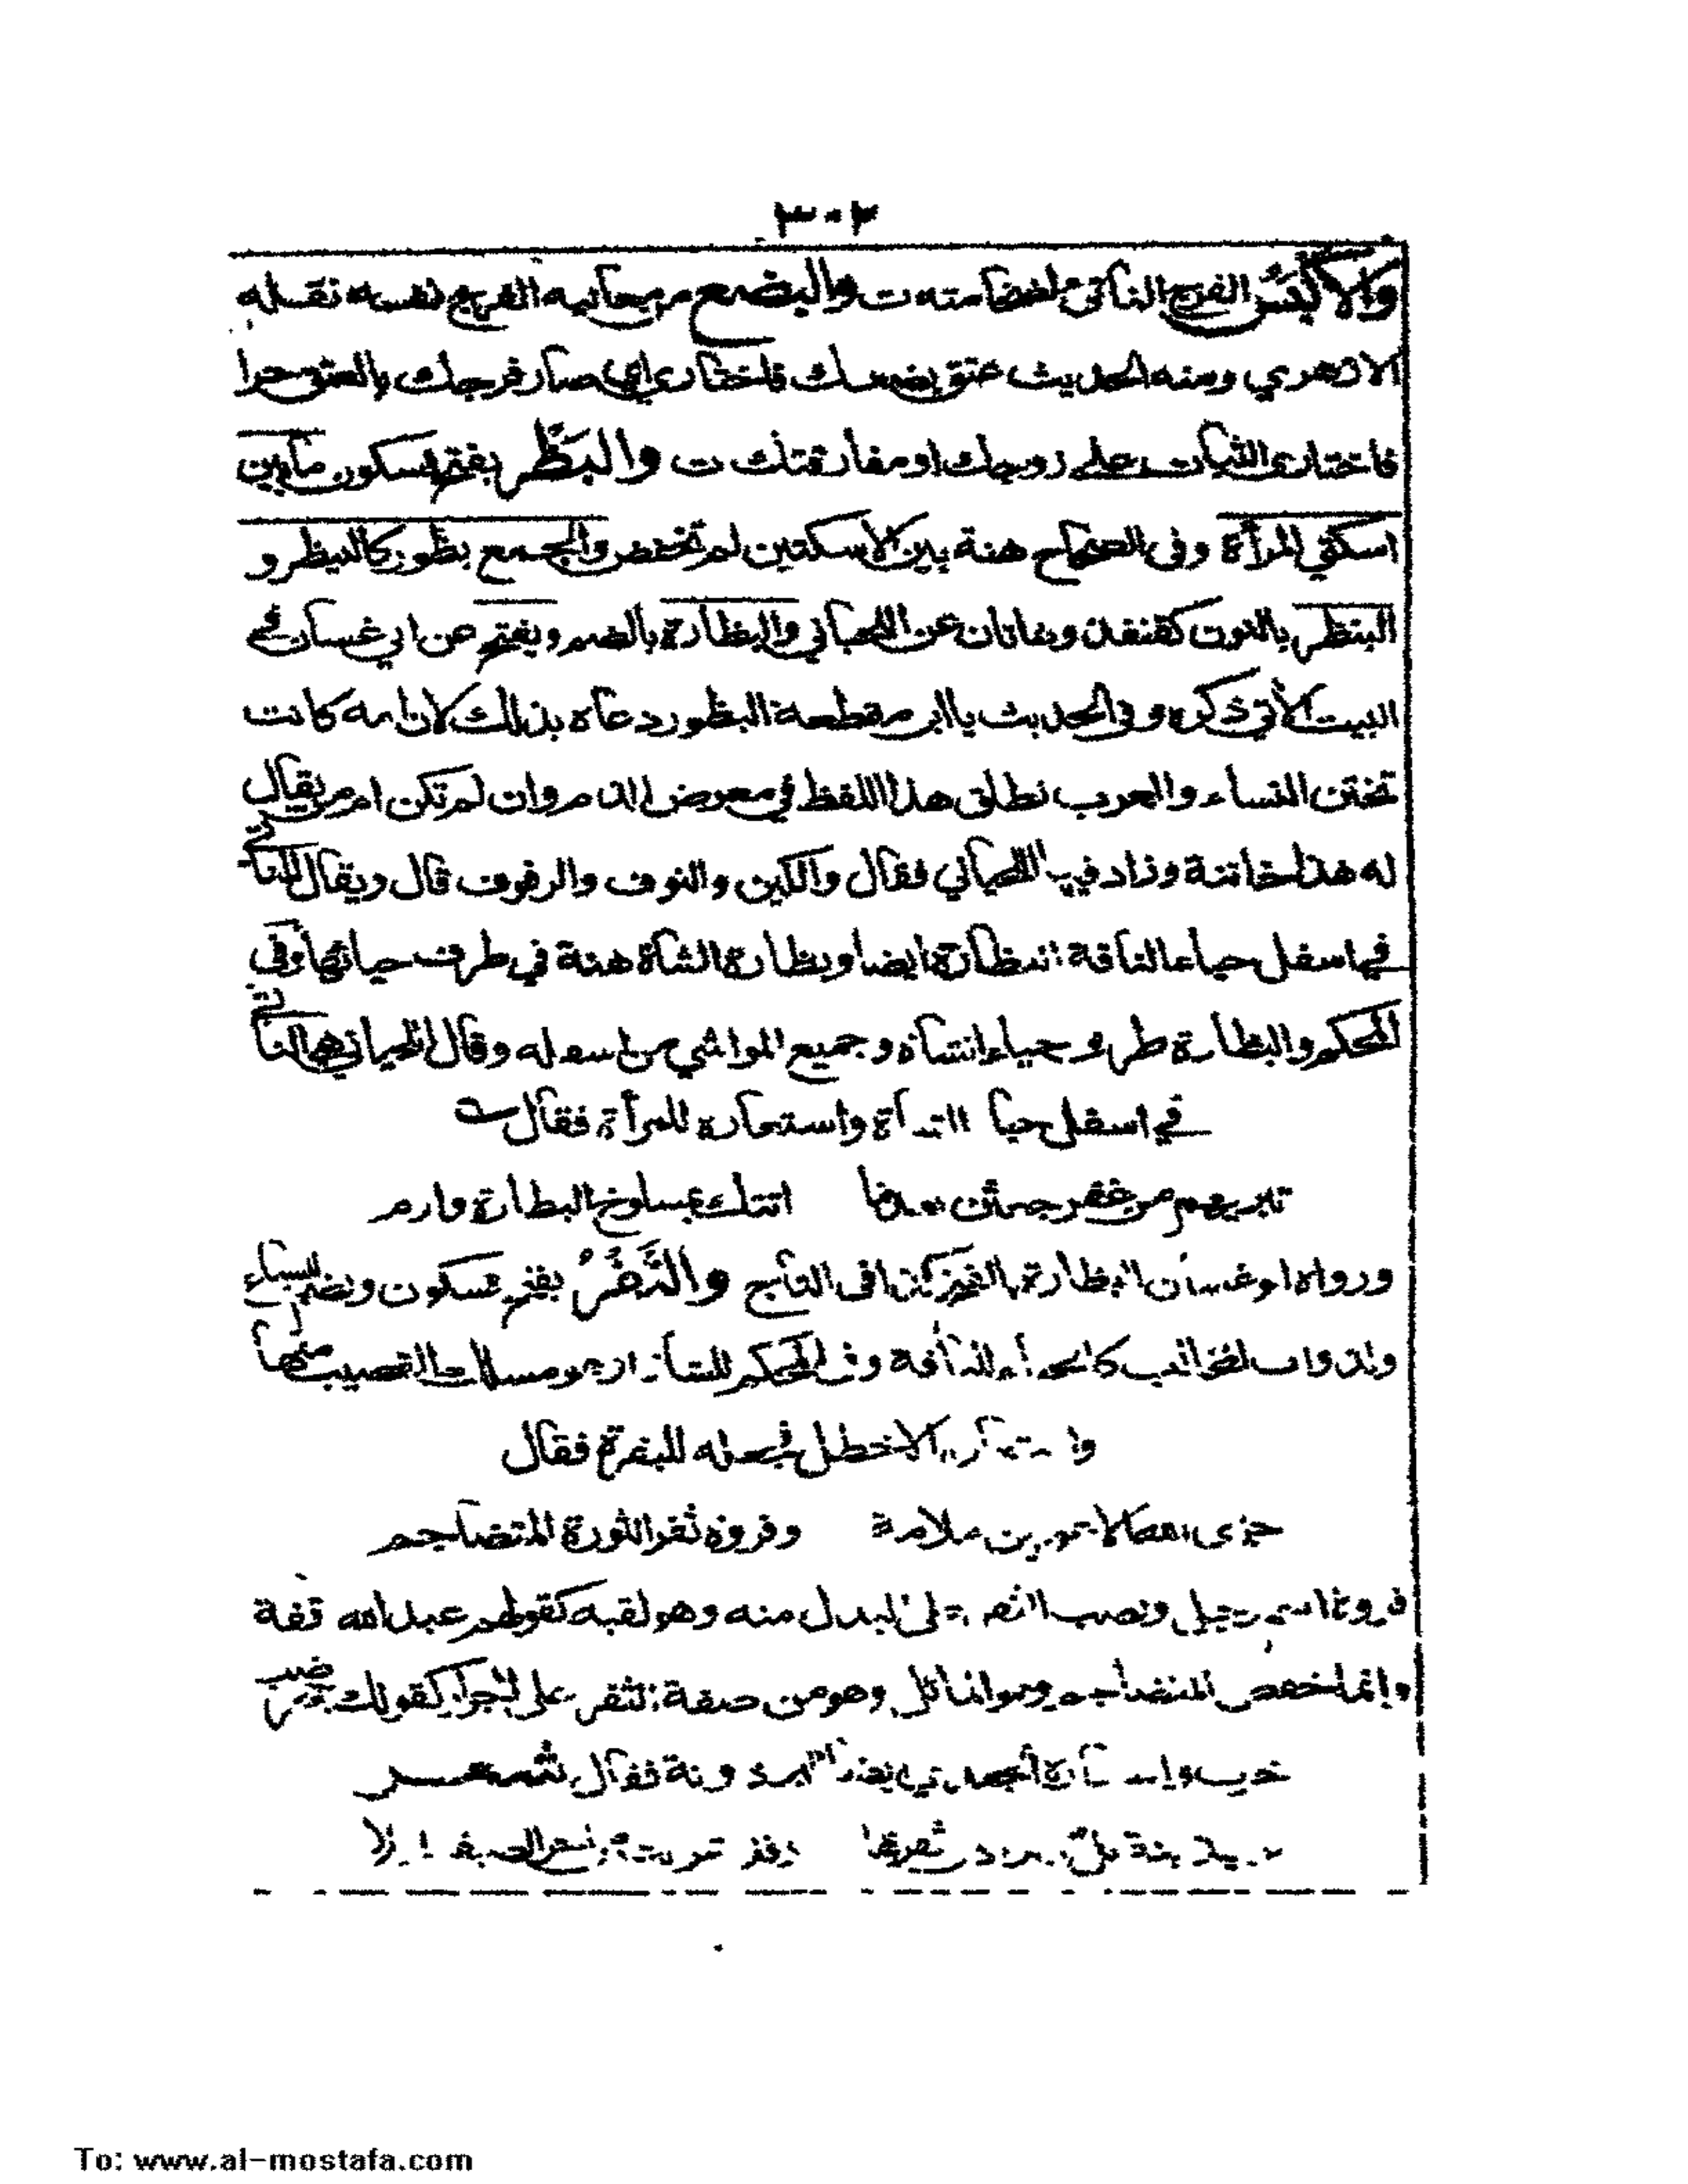 ٣٠٢
والاكبس الفرج الناتئ لضخامته ت والبضع من معانيه الفرج نفسه نقله
الازهري ومنه الحديث عتق بضعك فاختاري اي صار فرجك بالعتق حرا
فاختاري الثبات على زوجك او مفارقتك ت والبَظْر بفتح فسكون ما بين
اسكتي المرأة وفى الصحاح هنة بين الاسكتين لم تخفض والجمع بظور كالبيظر و
البنظر بالنون كقنفذ وهاتان عن اللحياني والبظارة بالضم ويفتح عن ابي غسان في
البيت الأتي ذكره وفي الحديث يا ابن مقطعة البظور دعاه بذلك لان امه كانت
تختن النساء والعرب تطلق هذا اللفظ في معرض الذم وان لم تكن ام من يقال
له هذا خاتنة وزاد فيها اللحياني فقال والكين والنوف والرفوف قال ويقال للناتئ
في اسفل حياء الناقة البظارة ايضا وبظارة الشاة هنة في طرف حيائها وفي
المحكم والبظارة طرف حياء الشاة وجميع المواشي من اسفله وقال اللحياني هي الناتئ
في اسفل حيا الشاة واستعاره للمرأة فقال
من عقر جعثن بعدما اتتك بمسلوخ البظارة وارم
ورواه ابو غسان البظارة بالفتح كذا فى التاج والثَّفْرُ بفتح فسكون ويضم للسباع
ولذوات المخالب كالحياء للناقة وفي المحكم للشاة او هو مسلك القضيب منها
واستعاره الاخطل فجعله للبقرة فقال
جزى الله الاعورين ملامة وفروة ثفر الثورة المتضاجم
فروة اسم رجل ونصب الثفر على البدل منه وهو لقبه كقولهم عبد الله قفة
وانما خفض المتضاجم وهو المائل وهو من صفة الثفر على الجوار كقولك جحر ضب
خرب واستعاره الجعدي ايضا للبرذونة فقال شعر